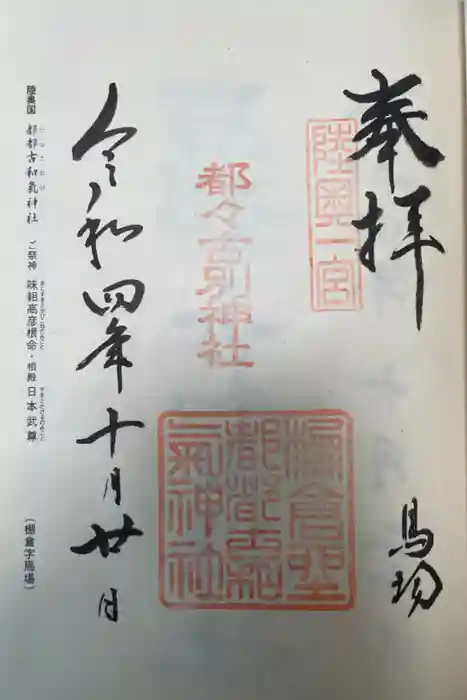 奉拝
陸奥一宮
馬場
都々古別神社
棚倉里
都都古和
氣神社
令和四年十月廿日
陸奥国 都都古和氣神社 ご祭神 味耜高彦根命・相殿 日本武尊 (棚倉字馬場)